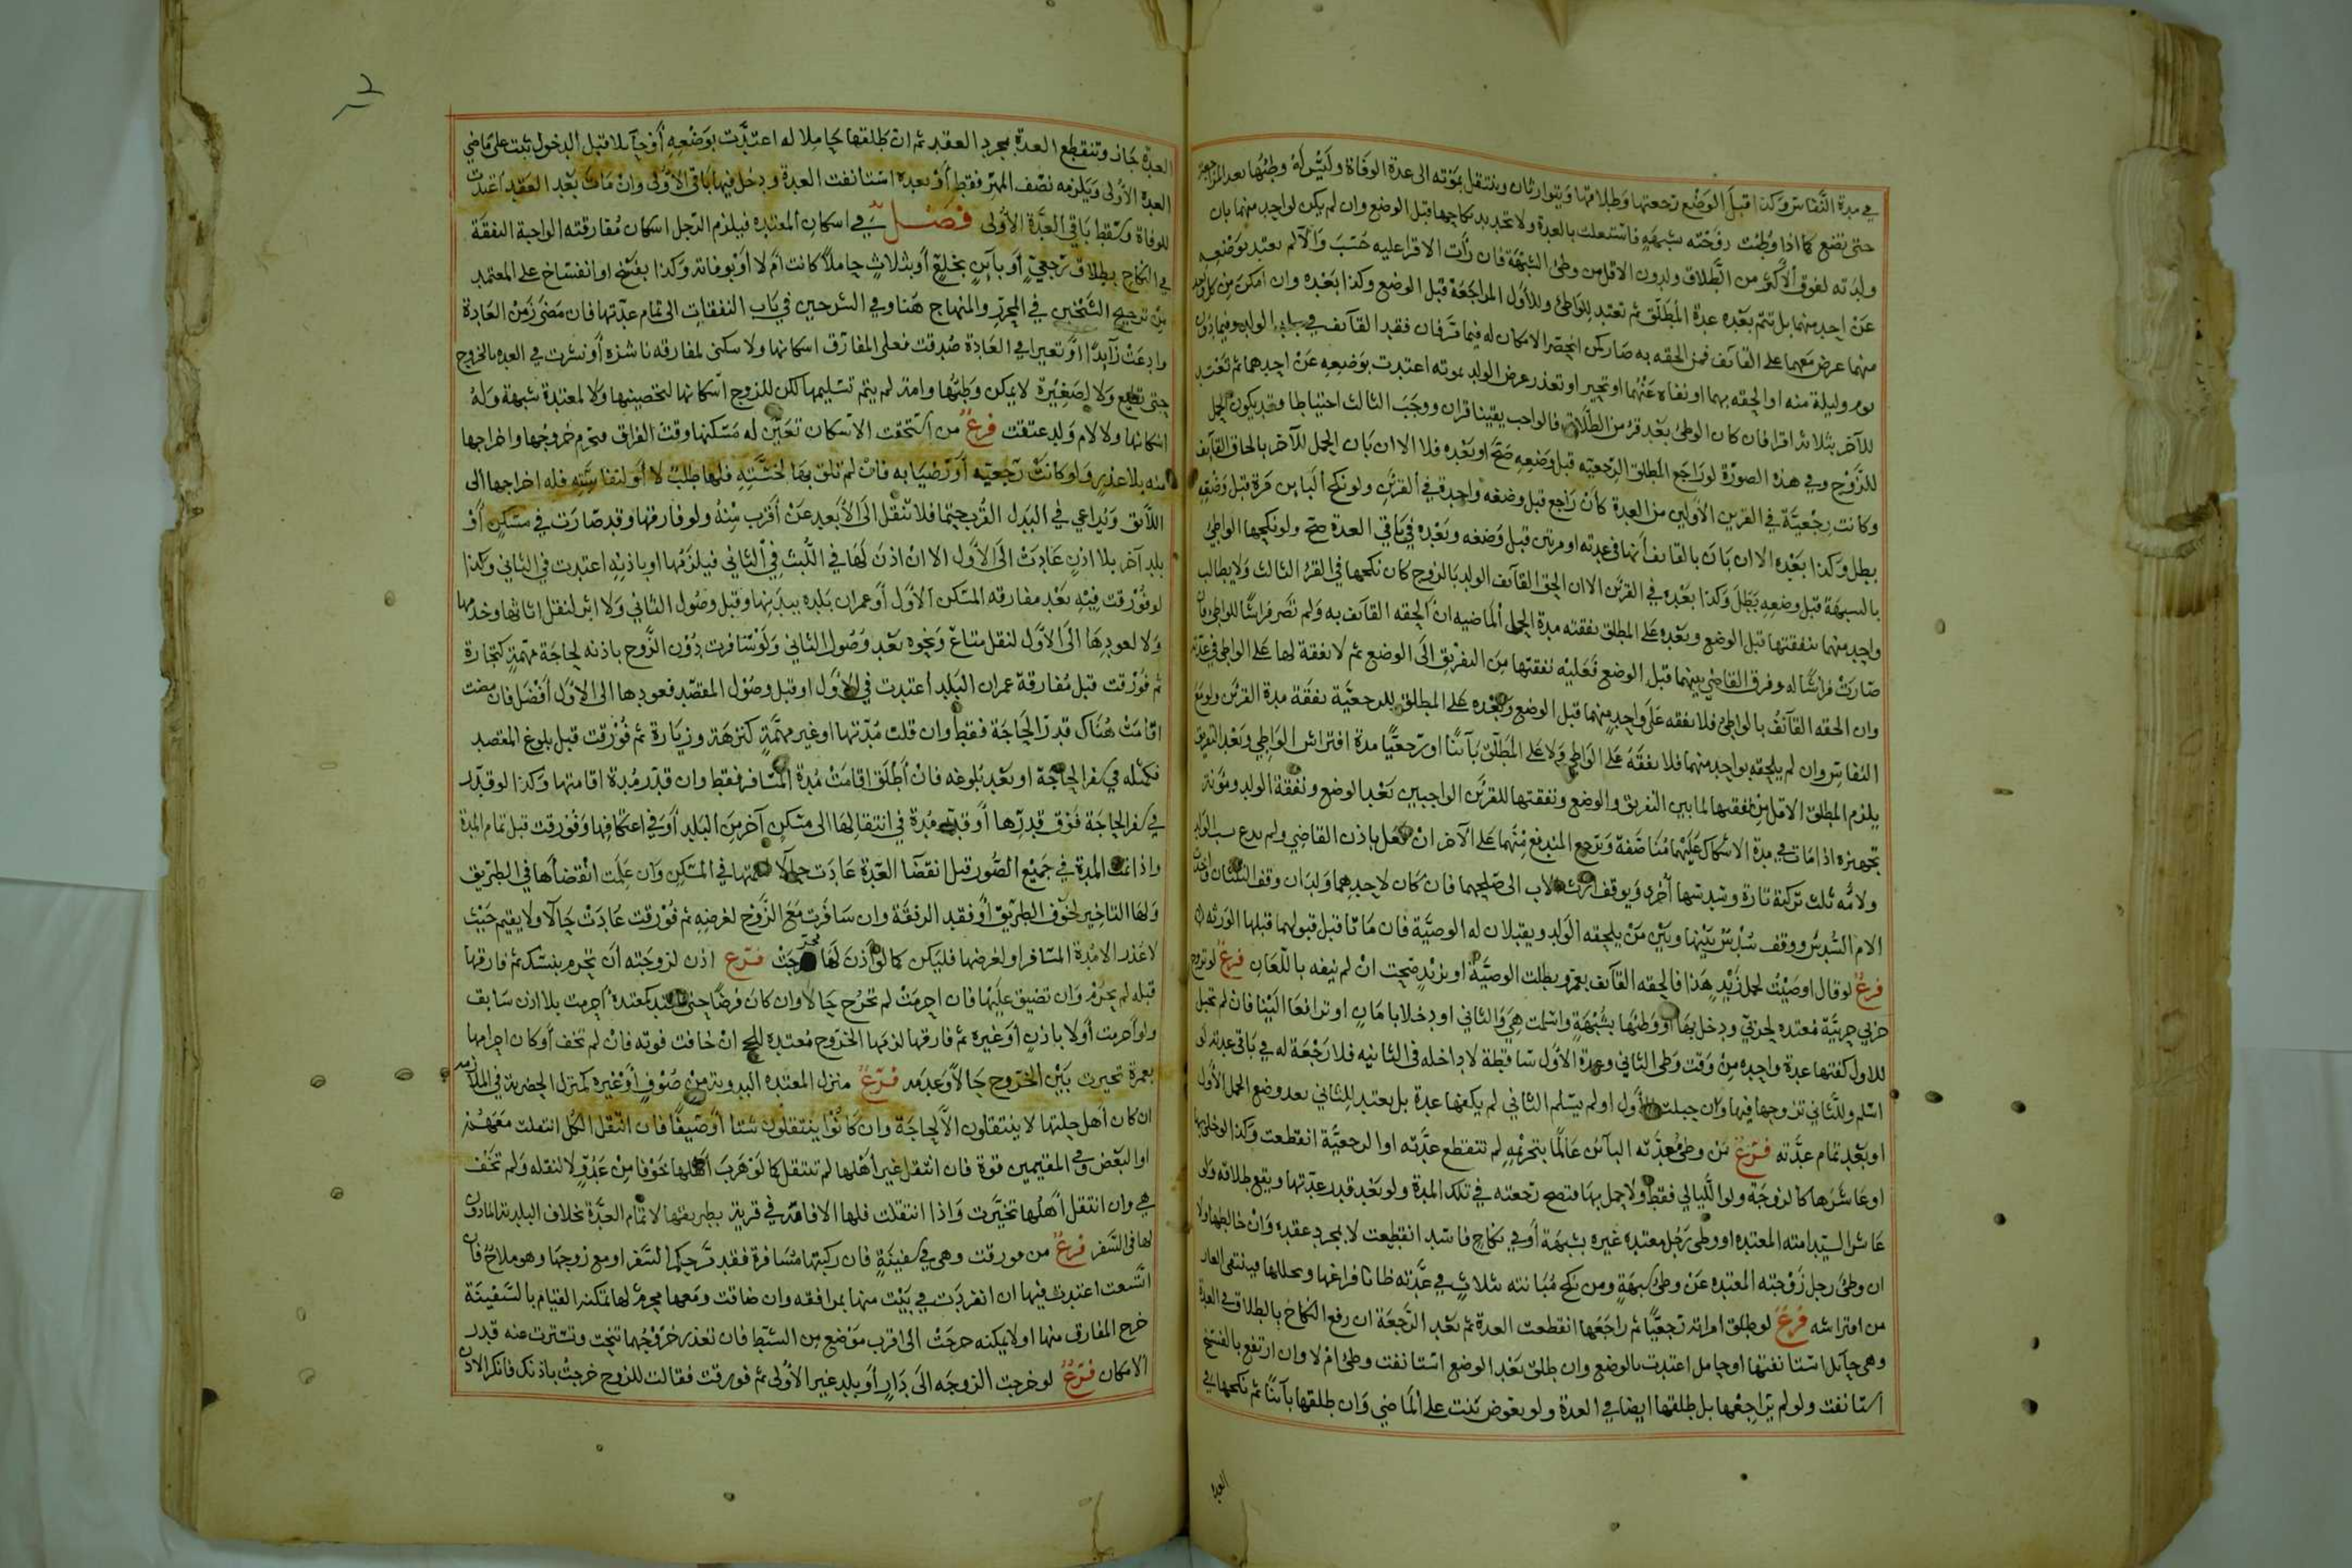 في مدة النفاس وكذا قبل الوضع رجعتها وطلاقها ويتوارثان وينتقل بموته الى عدة الوفاة وليس له وطئها بعد المراجعة
حتى تضع كما اذا وطئت زوجته بشبهة فاشتغلت بالعدة ولا تجديد نكاحها قبل الوضع وان لم يكن لواحد منهما بان
ولدته لفوق الاكثر من الطلاق ولدون الاقل من وطئ الشبهة فان رأت الاقرا عليه حسب والا لم يعتد بوضعه
عن احد منهما بل تتم بعده عدة المطلق ثم تعتد للواطئ وللاول المراجعة قبل الوضع وكذا بعده وان امكن من كل واحد
منهما عرض معهما على القائف فمن الحقه به صار كمن انحصر الامكان له فيما مر فان فقد القائف في بلد الولد وفيما دون
يوم وليلة منه او الحقه بهما او نفاه عنهما او تحير او تعذر عرض الولد بموته اعتدت بوضعه عن احدهما ثم تعتد
للآخر بثلاثة اقرا فان كان الوطئ بعد قرء من الطلاق فالواجب يقينا قران ووجب الثالث احتياطا وقد يكون الحمل
للزوج وفي هذه الصورة لو راجع المطلق الرجعية قبل وضعه صح او بعده فلا الا ان بان الحمل للآخر بالحاق القائف
وكانت رجعية في القرين الاولين من العدة كأن راجع قبل وضعه واحدة في القرئين ولو نكح البائن مرة قبل وضعه
بطل وكذا بعده الا ان بان بالقائف أنها في عدته او مرتين قبل وضعه وبعده في باقي العدة صح ولو نكحها الواطئ
بالشبهة قبل وضعه بطل وكذا بعده في القرئين الا ان الحق القائف الولد بالزوج كان نكحها في القرء الثالث ولا يطالب
واحد منهما بنفقتها قبل الوضع وبعده على المطلق نفقته مدة الحمل الماضيه ان الحقه القائف به ولم تصر فراشا للواطئ فان
صارت فراشا له وفرق القاضي بينهما قبل الوضع فعليه نفقتها من التفريق الى الوضع ثم لا نفقة لها على الواطئ في عدته
وان الحقه القائف بالواطئ فلا نفقه على واحد منهما قبل الوضع وبعده على المطلق للرجعية نفقة مدة القرئين ولو مع
النفاس وان لم يلحقه بواحد منهما فلا نفقة على الواطئ ولا على المطلق بائنا او رجعيا مدة افتراش الواطئ وبعد التفريق
يلزم المطلق الاقل من نفقتها لما بين التفريق والوضع ونفقتها للقرئين الواجبين بعد الوضع ونفقة الولد ومؤنة
تجهيزه اذا مات في مدة الاشكال عليهما مناصفة ويرجع المندفع منهما على الآخر ان فعل باذن القاضي ولم يدع الولد
ولامه ثلث تركته تارة وسدسها أخرى ويوقف ارث الاب الى صلحهما فان كان لاحدهما ولدان وقف الثلثان
الام السدس ووقف سدس بينها وبين من يلحقه الولد ويقبلان له الوصية فان ماتا قبل قبولهما قبلها الورثه
فرع لو قال اوصيت لحمل زيد هذا فالحقه القائف بعمرو بطلت الوصية او بزيد صحت ان لم ينفه باللعان فرع لو تزوج
حربي حربية معتدة لحربي ودخل بها او وطئها بشبهة واسلمت هي والثاني او دخلا بامان او ترافعا الينا فان لم تحبل
للاول كفتها عدة واحده من وقت وطئ الثاني وعدة الاول ساقطة لا داخله في الثانيه فلا رجعة له في باقي عدته
اسلم وللثاني تزوجها فيها وان حبلت للأول او لم يسلم الثاني لم يكفها عدة بل يعتد للثاني بعد وضع الحمل الاول
او بعد تمام عدته فرع من وطئ معتدته البائن عالما بتحريمه لم تنقطع عدته او الرجعية انقطعت وكذا لو خلا بها
او عاشرها كالزوجة ولو الليالي فقط ولا حمل بها فتصح رجعته في تلك المدة ولو بعد قدر عدتها ويقع طلاقه
عاشر السيد امته المعتده او وطئ رجل معتده غيره بشبهة أو في نكاح فاسد انقطعت لا بمجرد عقده وان خالطها
ان وطئ رجل زوجته المعتده عن وطئ شبهة ومن نكح مبانته بثلاث في عدته ظانا فراغها
من افتراشه فرع لو طلق امراته رجعيا ثم راجعها انقطعت العدة ثم بعد الرجعة ان رفع النكاح بالطلاق في العدة
وهي حائل استانفتها او حامل اعتدت بالوضع وان طلق بعد الوضع استانفت وطئ ام لا وان ارتفع بالفسخ
استانفت ولو لم يراجعها بل طلقها ايضا في العدة ولو بعوض بنت على الماضي وان طلقها بائنا ثم نكحها في
العدة
العدة جاز وتنقطع العدة بمجرد العقد ثم ان طلقها حاملا له اعتدت بوضعه أو حائلا قبل الدخول بنت على ماضي
العدة الاولى ويلزمه نصف المهر فقط أو بعده استانفت العدة ودخل فيها باقي الاولى وان مات بعد العقد اعتدت
للوفاة وسقط باقي العدة الاولى فصل في اسكان المعتده فيلزم الرجل اسكان مفارقته الواجبة النفقة
في النكاح بطلاق رجعي أو بائن بخلع أو بثلاث حاملا كانت ام لا أو بوفاته وكذا بفسخ او انفساخ على المعتمد
من ترجيح الشيخين في المحرر والمنهاج هنا وفي الشرحين في باب النفقات الى تمام عدتها فان مضى زمن العادة
وادعت زائدا او تغيرا في العادة صدقت فعلى المفارق اسكانها ولا سكنى لمفارقه ناشزه أو نشزت في العده بالخروج
حتى تطيع ولا لصغيرة لا يمكن وطئها وامة لم يتم تسليمها لكن للزوج اسكانها لتحصينها ولا لمعتدة شبهة وله
اسكانها ولا لام ولد عتقت فرع من استحقت الاسكان تعين له مسكنها وقت الفراق فيحرم خروجها واخراجها
منه بلا عذر ولو كانت رجعية أو رضيا به فان لم تلق بها لخسته فلها طلب لائق او لنفاسته فله اخراجها الى
اللائق ويراعي في البدل القرب حتما فلا تنقل الى الأبعد عن أقرب منه ولو فارقها وقد صارت في مسكن أو
بلد آخر بلا اذن عادت الى الاول الا ان اذن لها في اللبث في الثاني فيلزمها او باذنه اعتدت في الثاني وكذا
لو فورقت فيه بعد مفارقه المسكن الاول أو عمران بلده ببدنها وقبل وصول الثاني ولا اثر لنقل اثاثها وخدمها
ولا لعودها الى الاول لنقل متاع ونحوه بعد وصول الثاني ولو سافرت دون الزوج باذنه لحاجة مهمة كتجارة
ثم فورقت قبل مفارقة عمران البلد اعتدت في الاول او قبل وصول المقصد فعودها الى الاول أفضل فان مضت
اقامت هناك قدر الحاجة فقط وان قلت مدتها او غير مهمة كنزهة وزيارة ثم فورقت قبل بلوغ المقصد
فكمثله في سفر الحاجة او بعد بلوغه فان أطلق اقامت مدة المسافر فقط وان قدر مدة اقامتها وكذا لو قدر
في سفر الحاجة فوق قدرها أو قدر مدة في انتقالها الى مسكن آخر من البلد أو في اعتكافها وفورقت قبل تمام المدة
واذا تمت المدة في جميع الصور قبل انقضا العدة عادت حالا لتتمتها في المسكن وان علمت انقضاها في الطريق
ولها التاخير لخوف الطريق أو فقد الرفقة وان سافرت مع الزوج لغرضه ثم فورقت عادت حالا ولا يقيم حيث
لا عذر الا مدة المسافر او لغرضها فليكن كما لو اذن لها فخرجت فرع اذن لزوجته أن تحرم بنسك ثم فارقها
قبله لم يحرم وان تضيق عليها فان احرمت لم تخرج حالا وان كان فرضا حتى كمعتدة احرمت بلا اذن سابق
ولو أحرمت أولا باذن أو غيره ثم فارقها لزمها الخروج معتدة للحج ان خافت فوته فان لم تخف أو كان احرامها
بعمرة تخيرت بين الخروج حالا وعدمه فرع منزل المعتده البدوية من صوف أو غيره كمنزل الحضرية في الملازمه
ان كان أهل حلتها لا ينتقلون الا لحاجة وان كانوا ينتقلون شتا أو صيفا فان انتقل الكل انتقلت معهم
او البعض وفي المقيمين قوة فان انتقل غير أهلها لم تنتقل كما لو هرب أهلها خوفا من عدو لا لنقله ولم تخف
هي وان انتقل أهلها تخيرت واذا انتقلت فلها الاقامة في قرية بطريقها لاتمام العدة بخلاف البلدية الماذون
لها في السفر فرع من فورقت وهي في سفينة فان ركبتها مسافرة فقد مر حكم السفر او مع زوجها وهو ملاح فان
اتسعت اعتدت فيها ان انفردت في بيت منها بمرافقه وان ضاقت ومعها محرم لها تمكنه القيام بالسفينة
خرج المفارق منها او لا يمكنه خرجت الى اقرب موضع من الشط فان تعذر خروجها تنحت وتسترت عنه قدر
الامكان فرع لو خرجت الزوجه الى دار أو بلد غير الاولى ثم فورقت فقالت للزوج خرجت باذنك فانكر الاذن